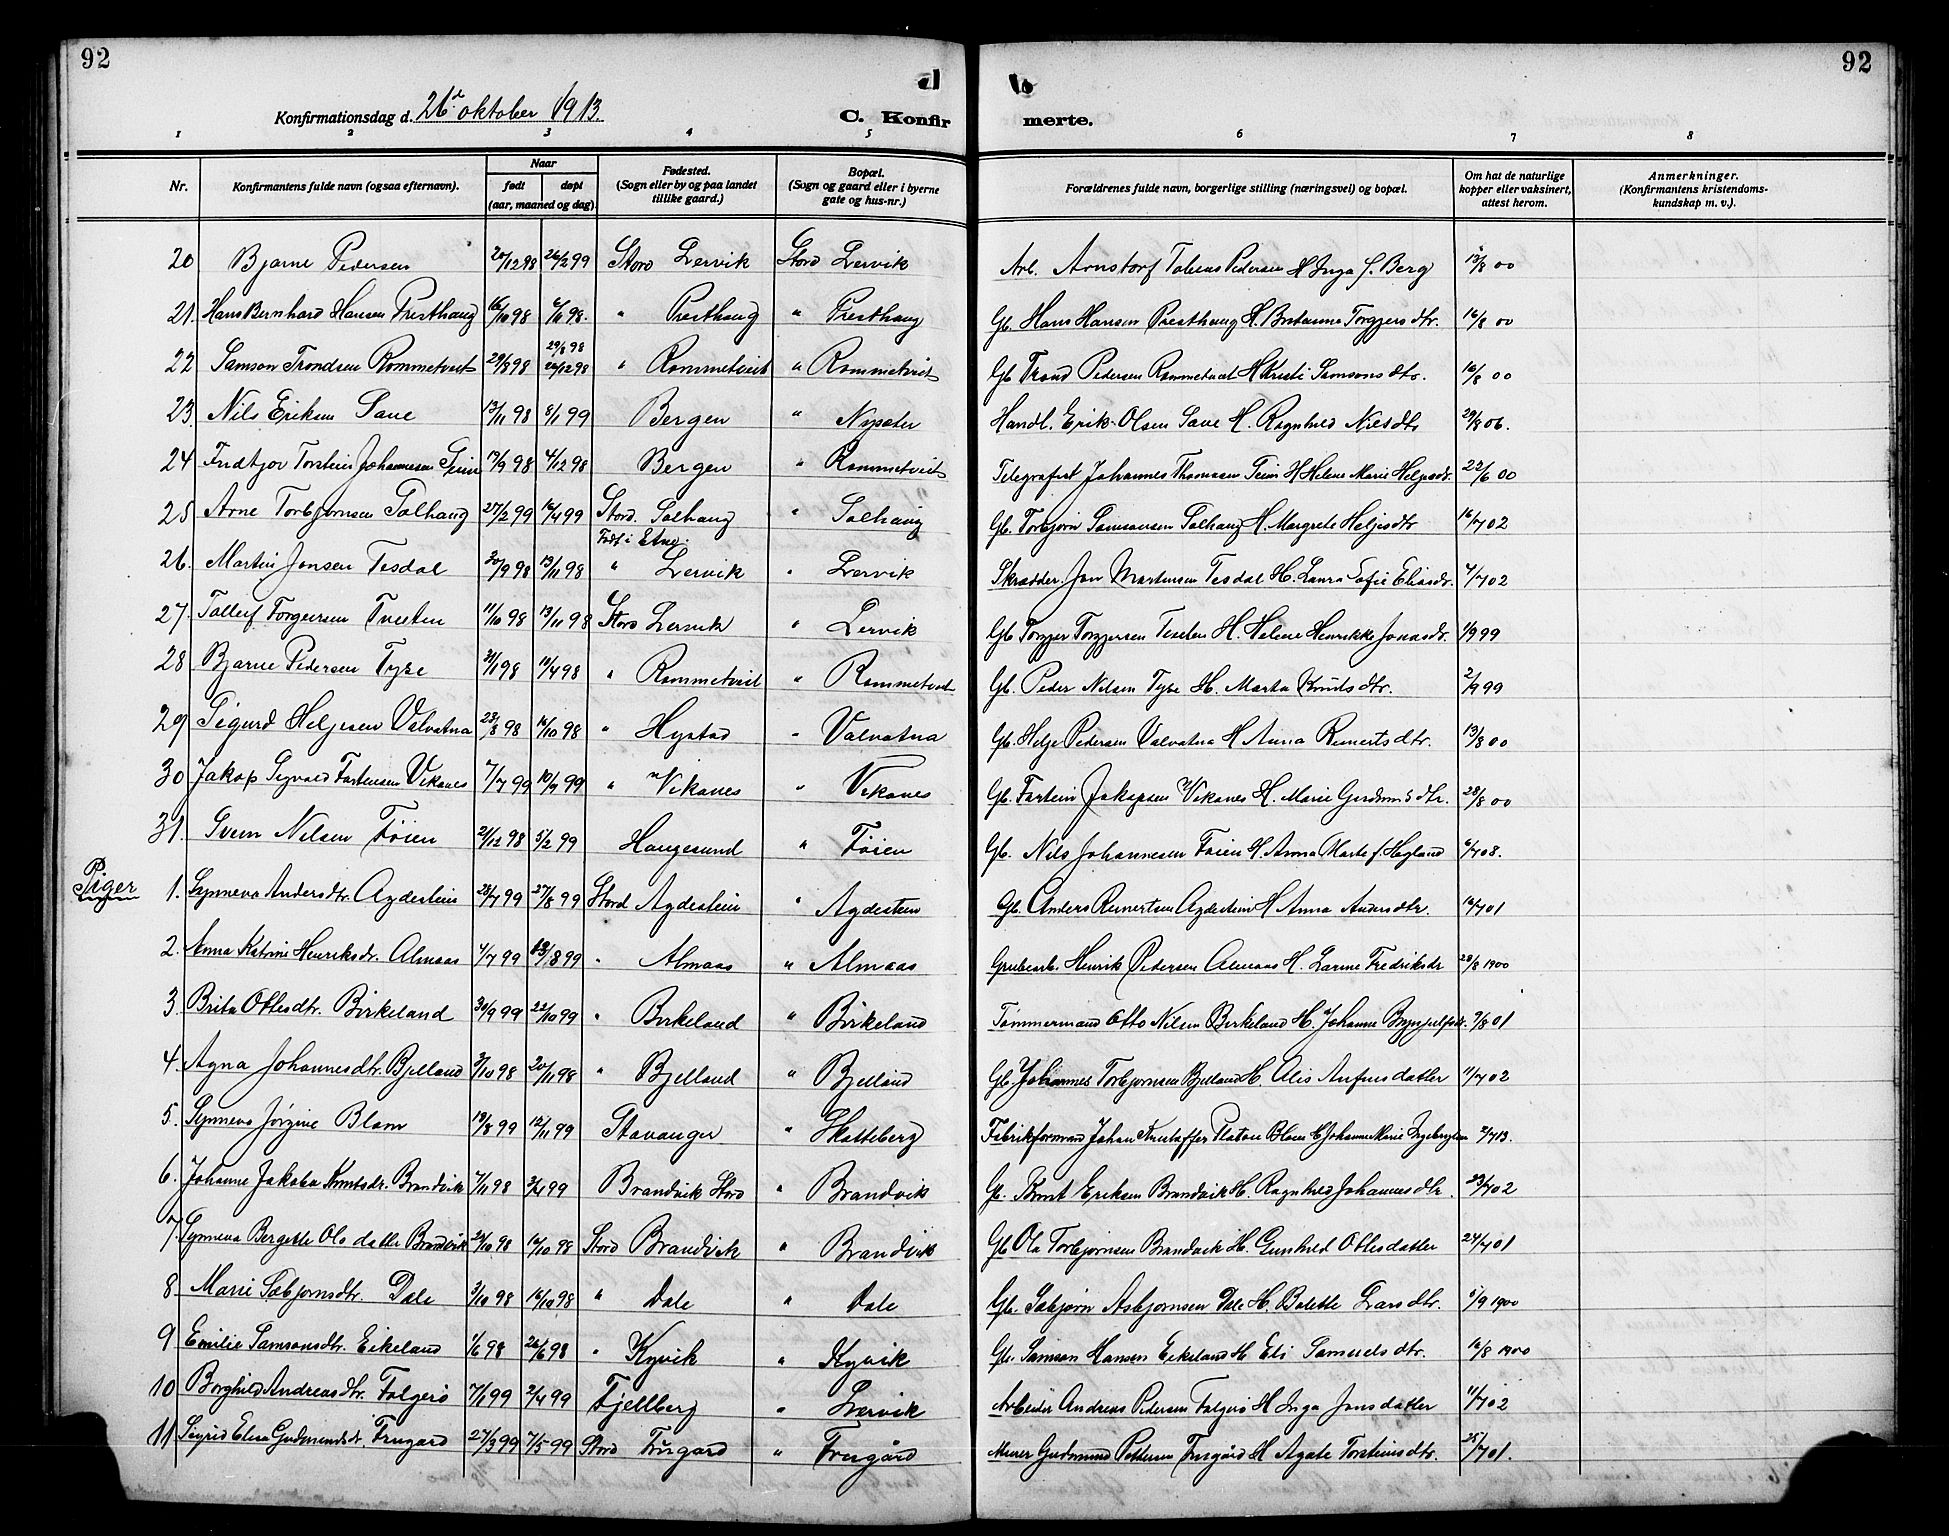 92 92
Konfirmationsdag d. 26de oktober 1913. C. Konfir merte.
1 2 3 4 5 6 7 8
Nr. Konfirmantens fulde navn (ogsaa efternavn). Naar født døpt (aar, maaned og dag). Fødested. (Sogn eller by og paa landet tillike gaard.) Bopæl. (Sogn og gaard eller i byerne gate og hus-nr.) Forældrenes fulde navn, borgerlige stilling (næringsvei) og bopæl. Om hat de naturlige kopper eller vaksinert, attest herom. Anmerkninger. (Konfirmantens kristendoms-kundskap m. v.).
20 Bjarne Pedersen 20/12 98 26/2 99 Stord Lervik Stord Lervik Arb. Arnstorf Tobias Pedersen H Inga f. Berg 13/8 00
21. Hans Bernhard Hansen Presthaug 16/10 98 6/11 98. " Presthaug " Presthaug Gb. Hans Hansen Presthaug H. Torgjersdtr. 16/8 00
22 Samson Trondsen Rommetveit 29/8 98 29/8 98 26/12 98 " Rommetveit " Rommetveit Gb Trond Pedersen Rommetveit H Kristi Samsonsdtr. 16/8 00
23. Nils Eriksen Save 13/11 98 8/1 99 Bergen " Nysæter Handl. Erik Olsen Save H. Ragnhild Nilsdtr 29/8 06.
24 Fridtjov Torstein Johannesen Teim 19/9 98 4/12 98 Bergen " Rommetveit Telegrafist Johannes Thomasen Teim H Helene Marie Heljesdr. 22/6 00
25 Arne Torbjørnsen Solhaug 27/2 99 16/4 99 Stord. Solhaug " Solhaug Gb. Torbjørn Samsonsen Solhaug H. Margrete Heljesdtr 16/7 02
26. Martin Jonsen Tesdal 30/9 98 13/11 98 Født i Etne. " Lervik " Lervik Skrædder. Jon Martensen Tesdal H. Laura Sofie Eliasdr. 4/7 02
27. Tolleif Torgersen Tveiten 11/10 98 13/11 98 Stord Lervik " Lervik Gb Torger Torgersen H. Helene Henrikke Jonasdr. 1/9 99
28 Bjarne Pedersen Tyse 31/1 98 11/4 98 " Rommetveit " Rommetveit Gb. Peder Nilsen Tyse H. Marta Knutsdtr. 2/9 99
29 Sigurd Heljesen Valvatna 28/8 98 16/10 98 " Hystad " Valvatna Gb. Helje Pedersen Valvatna H Anna Reinertsdtr. 13/8 00
30 Jakop Sigvald Fartensen Vikanes 7/7 99 10/9 99 " Vikanes " Vikanes Gb. Fartein Jakopsen Vikanes H. Marie Gudmundsdtr. 28/8 00
31. Svein Nilsen Føien 21/12 98 5/2 99 Haugesund " Føien Gb. Nils Johannesen Føien H. Anna Marte f. Hogland 6/7 08.
Piger
1. Synneva Andersdtr. Agdestein 28/7 99 27/8 99 Stord Agdestein " Agdestein Gb. Anders Reinertsen Agdestein H Anna Andersdtr. 16/7 01
2. Anna Katrine Henriksdr. Almaas 4/7 99 13/8 99 " Almaas " Almaas Grubearb. Henrik Pedersen Almaas H. Larine Fredriksdr 28/8 1900
3. Brita Ottesdtr. Birkeland 30/9 99 22/10 99 " Birkeland " Birkeland Tømmermand Otto Nilsen Birkeland H. Johanne 9/8 01
4. Agna Johannesdtr. Bjelland 3/10 98 20/11 98 " Bjelland " Bjelland Gb. Johannes Torbjørnsen Bjelland H. Alis datter 11/7 02
5. Synneva Jørgine Blom 19/8 99 12/11 99 Stavanger " Skatteberg Fabrikformand Johan Blom H Johanne Marie 2/7 13.
6. Johanne Jakoba Knutsdr. Brandvik 7/11 98 2/4 99 Brandvik Stord " Brandvik Gb. Knut Eriksen Brandvik H. Ragnhild Johannesdtr. 23/7 02
7. Synneva Bergette Ola datter Brandvik 2/10 98 16/10 98 Stord Brandvik " Brandvik Gb Ola Torbjørnsen Brandvik H. Gunhild Ottesdatter 24/7 01
8 Marie Sæbjørnsdtr. Dale 3/10 98 16/10 98 " Dale " Dale Gb. Sæbjørn Asbjørnsen Dale H. Bolette Larsdtr. 5/9 1900
9 Emilie Samsonsdtr. Eikeland 1/6 98 26/6 98 " Kyvik " Kyvik Gb. Samson Hansen Eikeland H Eli Samuelsdtr. 16/8 1900
10 Borghild Andreasdtr. Folgerø 7/1 99 2/4 99 Fjellberg " Lærvik Arbeider Andreas Pedersen Folgerø H Inga Jonsdatter 11/7 02
11 Sigrid Elisa Gudmundsdr. Frugard 27/3 99 7/5 99 Stord Frugard " Frugård Murer Gudmund Pettersen Frugård H Agate Torsteinsdtr. 25/7 01.